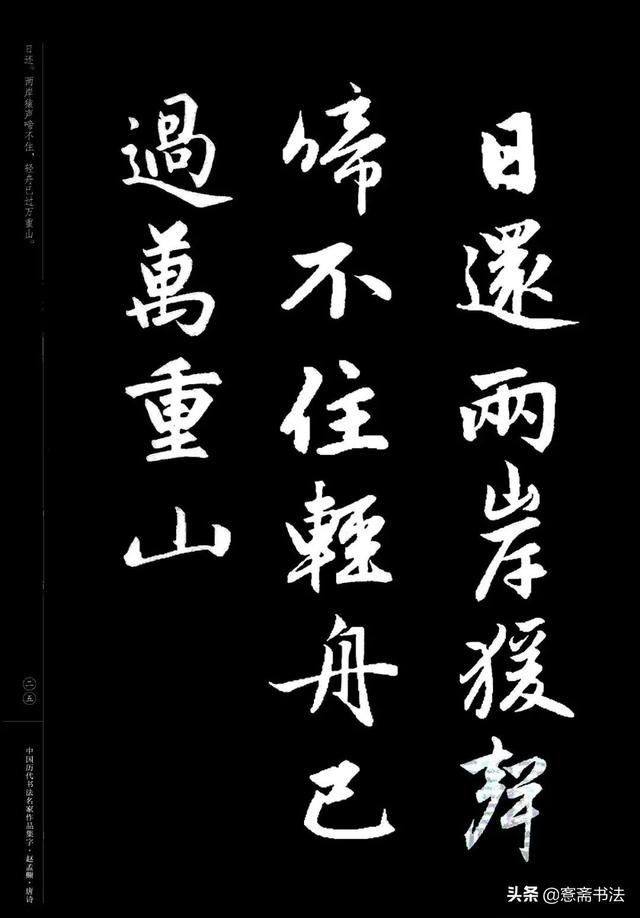 日還兩岸猨聲
啼不住輕舟已
過萬重山
日还。两岸猿声啼不住，轻舟已过万重山。
二五
中国历代书法名家作品集字·赵孟頫·唐诗
头条@窓斋书法